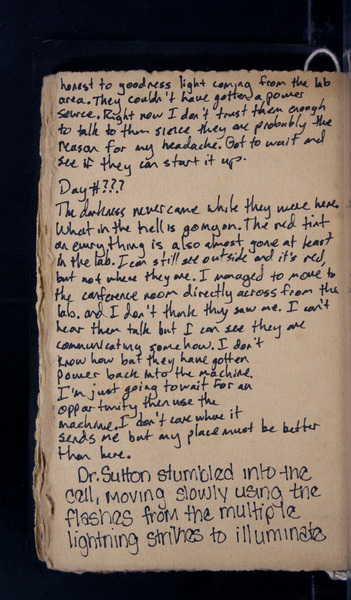 honest to goodness light coming from the lab
area. They couldn't have gotten a power
source. Right now I don't trust them enough
to talk to them since they are probably the
reason for my headache. Got to wait and
see if they can start it up.
Day #???
The darkness never came while they were here.
What in the hell is going on. The red tint
on everything is also almost gone at least
in the lab. I can still see outside and it's red,
but not where they are. I managed to move to
the conference room directly across from the
lab. and I don't think they saw me. I can't
hear them talk but I can see they are
communicating somehow. I don't
know how but they have gotten
power back into the machine.
I'm just going to wait for an
opportunity then use the
machine. I don't care where it
sends me but any place must be better
than here.
Dr. Sutton stumbled into the
cell, moving slowly using the
flashes from the multiple
lightning strikes to illuminate